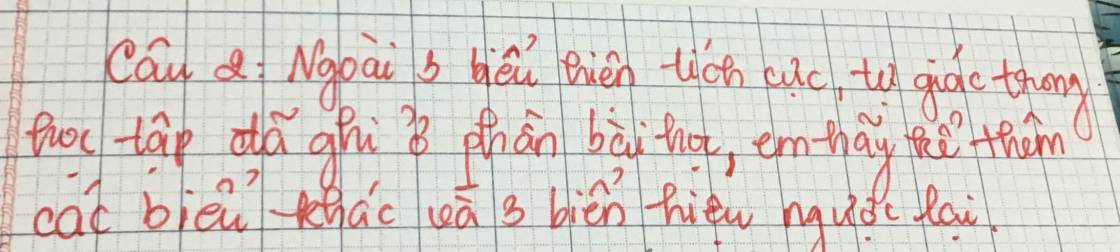 Câu 2: Ngoài 3 biểu hiện tích cực, tự giác trong
học tập đã ghi ở phần bài học, em hãy kể thêm
các biểu khác và 3 biển hiệu ngược lại.